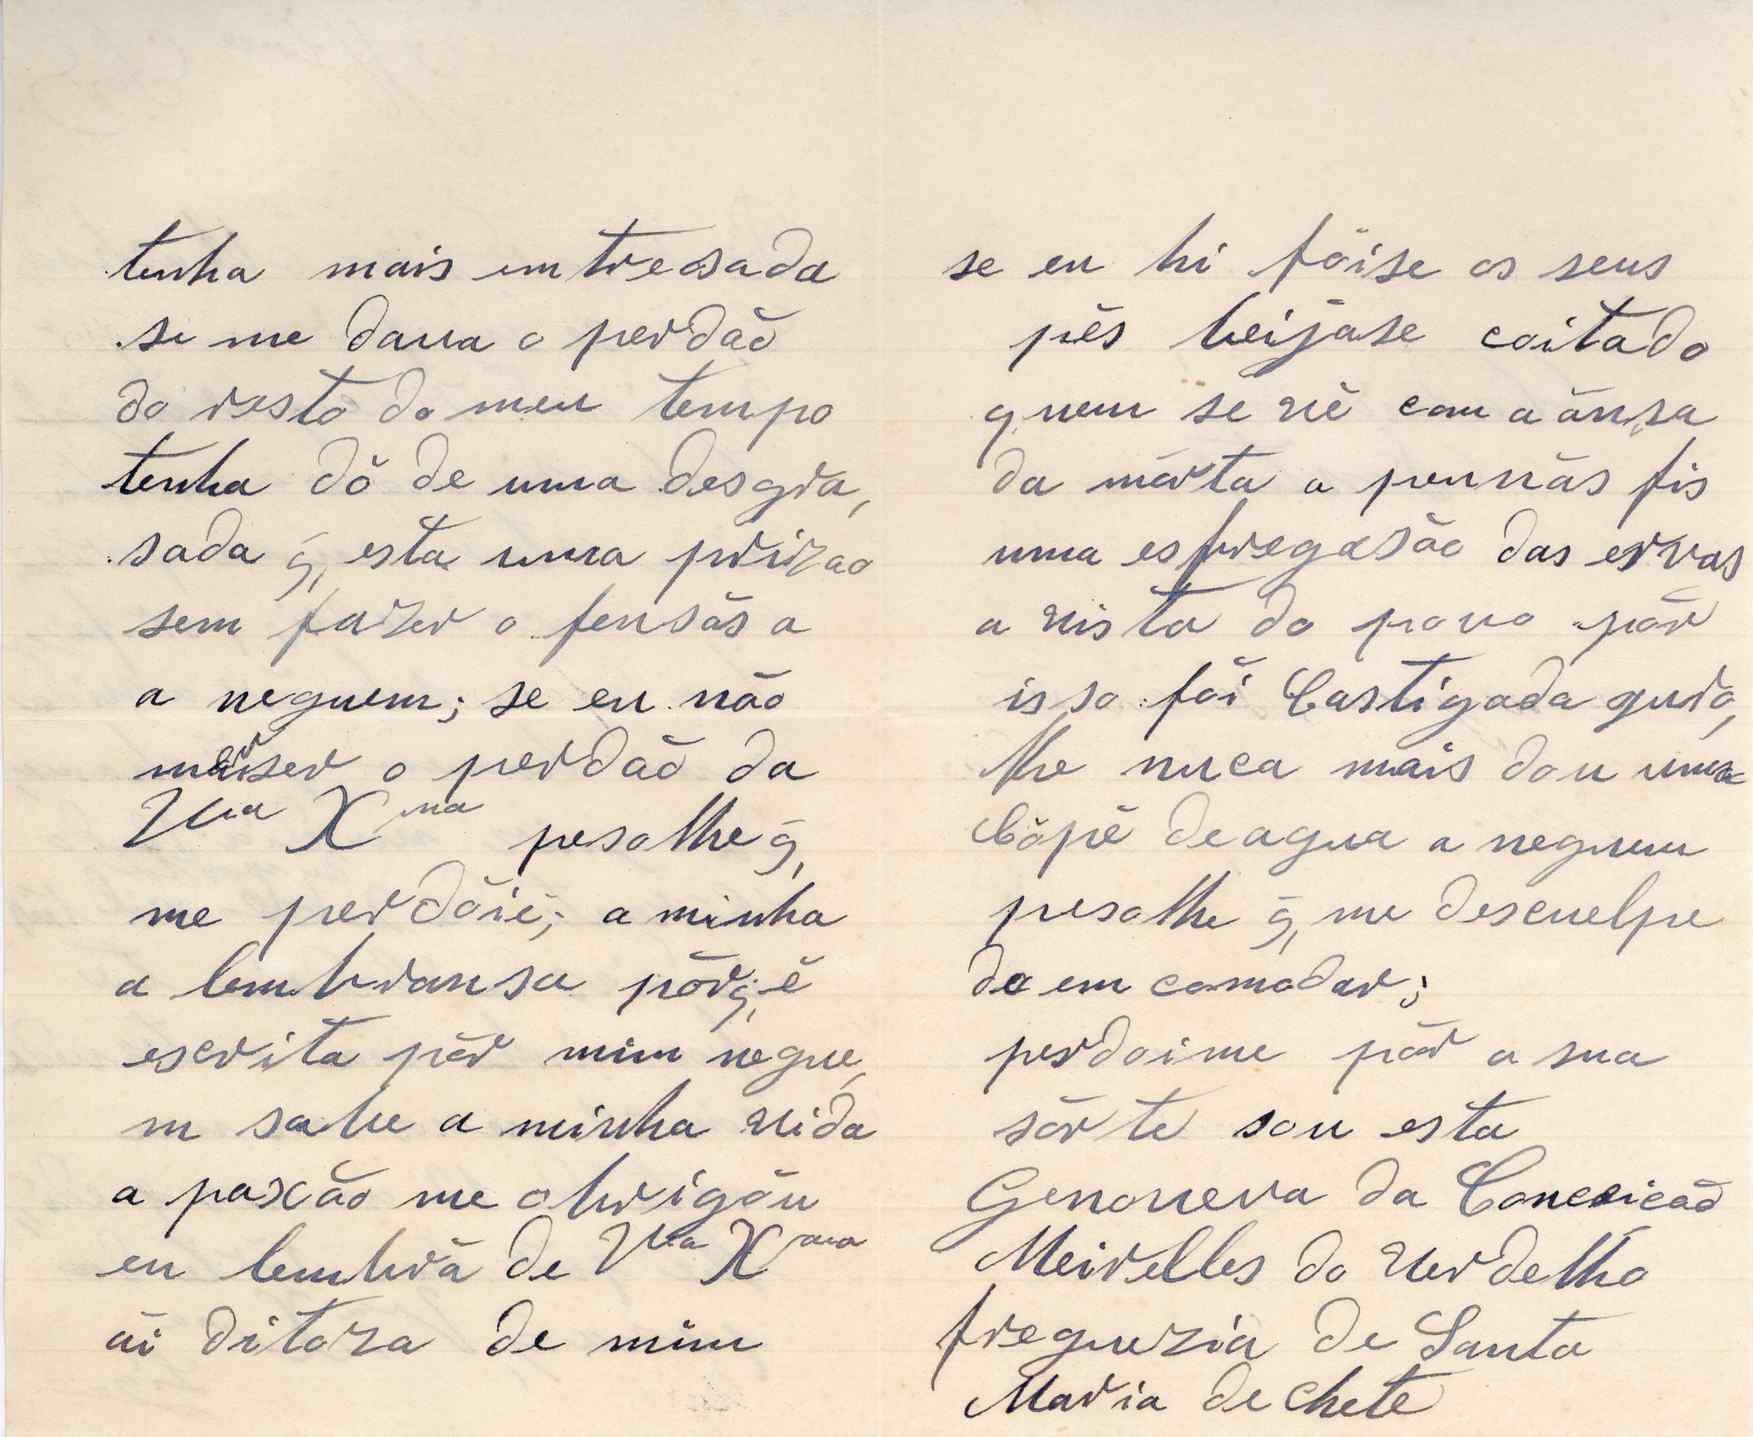 tenha mais emtresada
se me dava o perdão
do resto do meu tempo
tenha dó de uma desgra,
sada q̃ esta uma prizao
sem fazer o fensãs a
a neguem; se eu não
merser o perdão da
Vcia Xma pesolhe q̃
me perdõie; a minha
a lembransa põrq̃ é
escrita põr mim negue,
m sabe a minha vida
a paxão me obrigõu
eu lembrã de Vcia Xma
ãi ditoza de mim
se eu hi fõise os seus
pés beijáse coitado
quem se vê com a ãnsa
da mórta a pennãs fis
uma esfregasão das ervas
a vista do povo põr
isso fõi Castigada gurõ,
lhe nuca mais dou uma
Cópé de agua a neguem
pesolhe q̃ me desculpe
de em comodar;
perdoime põr a sua
sõrte sou esta
Genoveva da Conceicão
Meirelles do Verdelho
freguezia de Santa
Maria de Chete